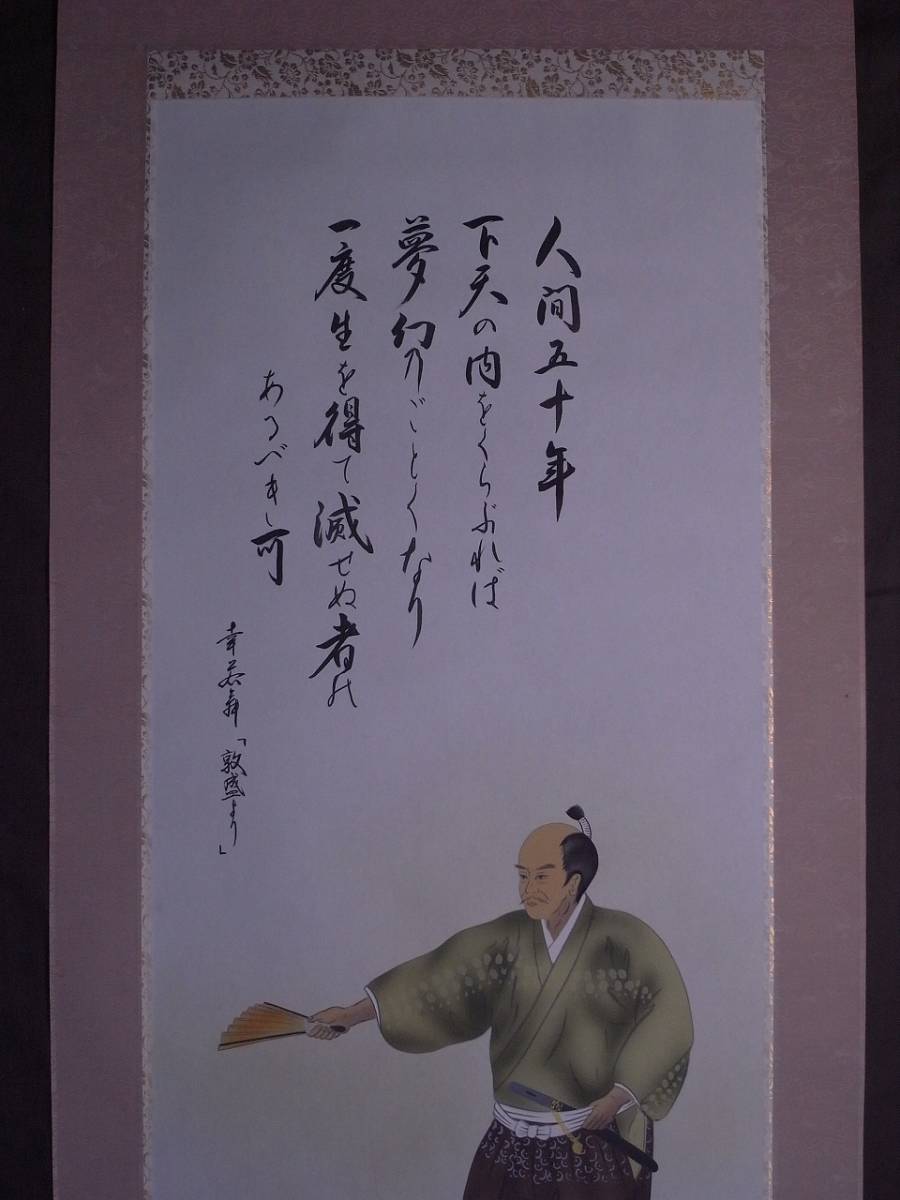 人間五十年
下天の内をくらぶれば
夢幻乃ごとくなり
一度生を得て滅せぬ者の
あるべき可
幸若舞「敦盛より」